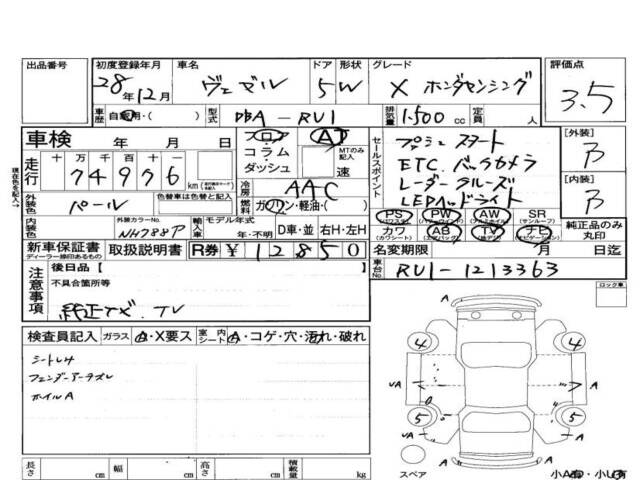 出品番号 初度登録年月 車名 ドア 形状 グレード 評価点
28年12月 ヴェゼル 5 W X ホンダセンシング 3.5
車歴 自家用・( ) 型式 DBA-RU1 排気量 1,500 cc 定員 人
車検 年 月 日 フロア AT セールスポイント プッシュスタート [外装]
コラム・ダッシュ MTのみ記入 速 ETC. バックカメラ B
走行 十 万 千 百 十 一 レーダークルーズ
74976 km 冷房 AAC LEDヘッドライト [内装]
現在色を記入→ 外装色 パール 色替車は色替と記入 燃料 ガソリン・軽油・( ) B
PS PW AW SR(サンルーフ) 純正品のみ丸印
内装色 外装カラーNo. NH788P 輸入車 モデル年式 年・不明 D車・並 右H・左H カワ(カワシート) AB TV ナビ
新車保証書 ディーラー様印あるもの 取扱説明書 R券 ¥12850 名変期限 月 日迄
注意事項 後日品[ ] 車台No. RU1-1213363
不具合箇所等 ロック車
純正ナビ. TV
検査員記入 ガラス A・X要ス 室内シート A・コゲ・穴・汚れ・破れ
シートシワ
ホイルA
4 4
UA A A
5 5
UA A
A
長さ cm 幅 cm 高さ cm 積載量 kg スペア 小A有・小U有